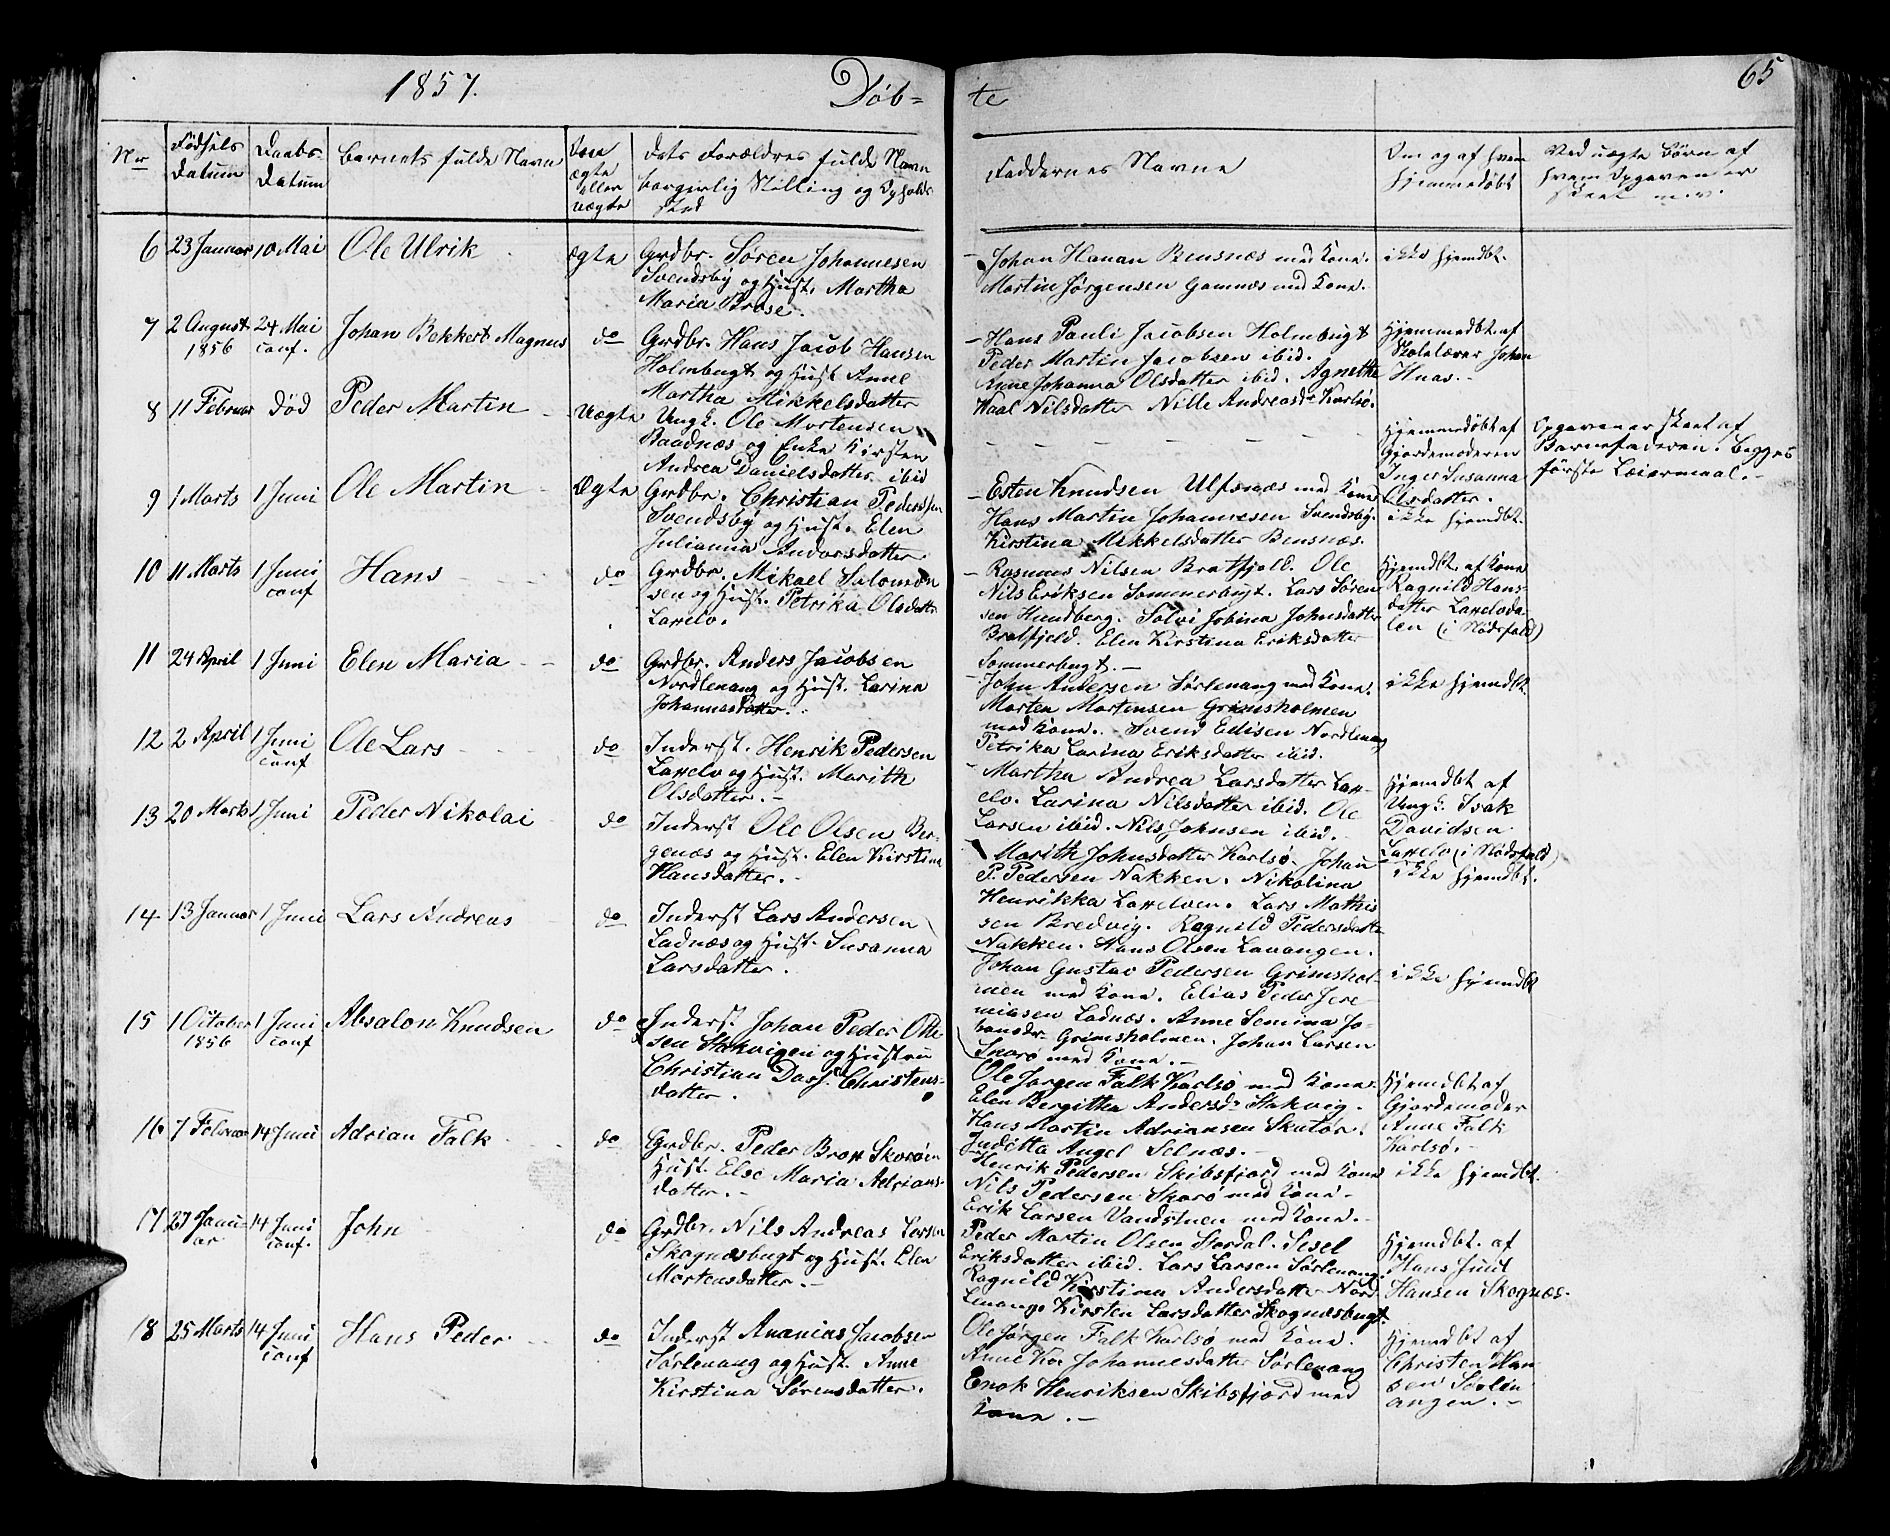 1857.
Døb=
te
65
Nr
Fødsels Datum
Daabs- Datum
Barnets fulde Navn
Om ægte eller uægte
Dets Forældres fulde Navn borgerlig Stilling og Opholds sted
Faddernes Navne
Om og af hvem hjemmedøbt
Ved uægte Børn af hvem Opgaven er skeet m. v.
6 23 Januar 10 Mai Ole Ulrik ægte
Grdbr. Søren Johannesen
Svendsby og Hust. Martha
Maria Brose.
Johan Hanan Bensnæs med Kone.
Martin Jørgensen Gamnæs med Kone.
ikke hjemdbt.
7 2 August 1856 24 Mai conf. Johan Bekkert Magnus do
Grdbr. Hans Jacob Hansen
Holmbugt og Hust Anne
Martha Mikkelsdatter
Hans Pauli Jacobsen Holmbugt
Peder Martin Jacobsen ibid.
Anne Johanna Olsdatter ibid. Agnethe
Waal Nilsdatter Nille Andreasdr Karlsø.
Hjemmedbt. af
Skolelærer Johan
Huas.
8 11 Februar død Peder Martin uægte
Ungk. Ole Mortensen
Baadnæs og Enke Kirsten
Andrea Danielsdatter ibid
Hjemmedøbt af
Gjordemoderen
Inger Susanna
Olsdatter.
Opgaven er skeet af
Barnefaderen. Begges
første Leiermaal.
9 1 Marts 1 Juni Ole Martin Ægte
Grdbr. Christian Pedersen
Svendsby og Hust. Elen
Julianna Andorsdatter
Esten Knudsen Ulfsnæs med Kone
Hans Martin Johannesen Svendsby.
Kirstina Mikkelsdatter Bensnæs.
ikke hjemdbt.
10 11 Marts 1 Juni conf Hans do
Grdbr. Mikael Salomon
sen og Hust. Petrika Olsdatt
Lakselv.
Rasmus Nilsen Bratfjeld. Ole
Nils Eriksen Sommerbugt. Lars Søren
sen Hundberg. Solvi Jobina Johnsdatter
Bratfjeld. Elen Kirstina Eriksdatter
Sommerbugt.
Hjemdbt. af Kone
Ragnild Hans-
datter Lakselvda-
len (i Nødsfald)
11 24 April 1 Juni Elen Maria do
Grdbr. Anders Jacobsen
Nordlenang og Hust. Larina
Johannasdatter.
John Andersen Sørlenang med Kone.
Morten Mortensen Grimsholmen
med Kone. Svend Edisen Nordlenang
Petrika Larina Eriksdatter ibid.
ikke hjemdbt.
12 2 April 1 Juni conf Ole Lars do
Inderst. Henrik Pedersen
Lakselv og Hust. Marith
Olsdatter.
Martha Andrea Larsdatter Laks-
elv. Larina Nilsdatter ibid. Ole
Larsen ibid. Nils Johnsen ibid.
Hjemdbt af
Ungk. Isak
Davidsen
Lakselv (i Nødsfald)
13 20 Marts 1 Juni Peder Nikolai do
Inderst Ole Olsen Ber-
genæs og Hust. Elen Kirstina
Hansdatter.
Marith Johnsdatter Karlsø. Johan
P. Pedersen Nakken. Nikolina
Henrikka Lakselven. Lars Mathis
sen Bredvig. Ragnild Pedersdatter
Nakken. Hans Olsen Lavangen.
ikke hjemdbt.
14 13 Januar 1 Juni Lars Andreas do
Inderst Lars Andersen
Ladnæs og Hust. Susanna
Larsdatter.
Johan Gustav Pedersen Grimshol-
men med Kone. Elias Peder Jere
miasen Ladnæs. Anne Semina Jo-
hansdr Grimsholmen. Johan Larsen
Skorø med Kone.
ikke hjemdbt
15 1 October 1856 1 Juni conf Absalon Knudsen do
Inderst. Johan Peder Otte
sen Stakvigen og Hustru
Christian Dass Christens-
datter.
Ole Jørgen Falk Karlsø med Kone.
Elen Bergitha Andersdr Stakvig.
Hans Martin Adriansen Skatør.
Juditta Angel Selnæs.
Hjemdbt af
Gjordemoder
Anne Falk
Karlsø.
16 7 Februar 14 Juni Adrian Falk do
Grdbr. Peder Brox Skorøen
Hust. Else Maria Adrians-
datter.
Henrik Pedersen Skibsfjord med Kone
Nils Pedersen Skorø med Kone.
Erik Larsen Vandstuen med Kone.
ikke hjemdbt.
17 27 Janu- ar 14 Juni conf. John do
Grdbr. Nils Andreas Larsen
Skognæsbugt og Hust. Elen
Mortensdatter.
Peder Martin Olsen Stordal. Sesel
Eriksdatter ibid. Lars Larsen Sørlenang.
Ragnild Kirstina Andersdatter Nord
Lenang Kirsten Larsdatter Skognæsbugt.
Hjemdbt. af
Hans Juul
Hansen Skognæs.
18 25 Marts 14 Juni conf Hans Peder do
Inderst Ananias Jacobsen
Sørlenang og Hust. Anne
Kirstina Sørensdatter.
Ole Jørgen Falk Karlsø med Kone.
Anne Kar Johannesdatter Sørlenang
Enok Henriksen Skibsfjord med
Kone.
Hjemdbt af
Christen Han
sen Sørlen
angen.